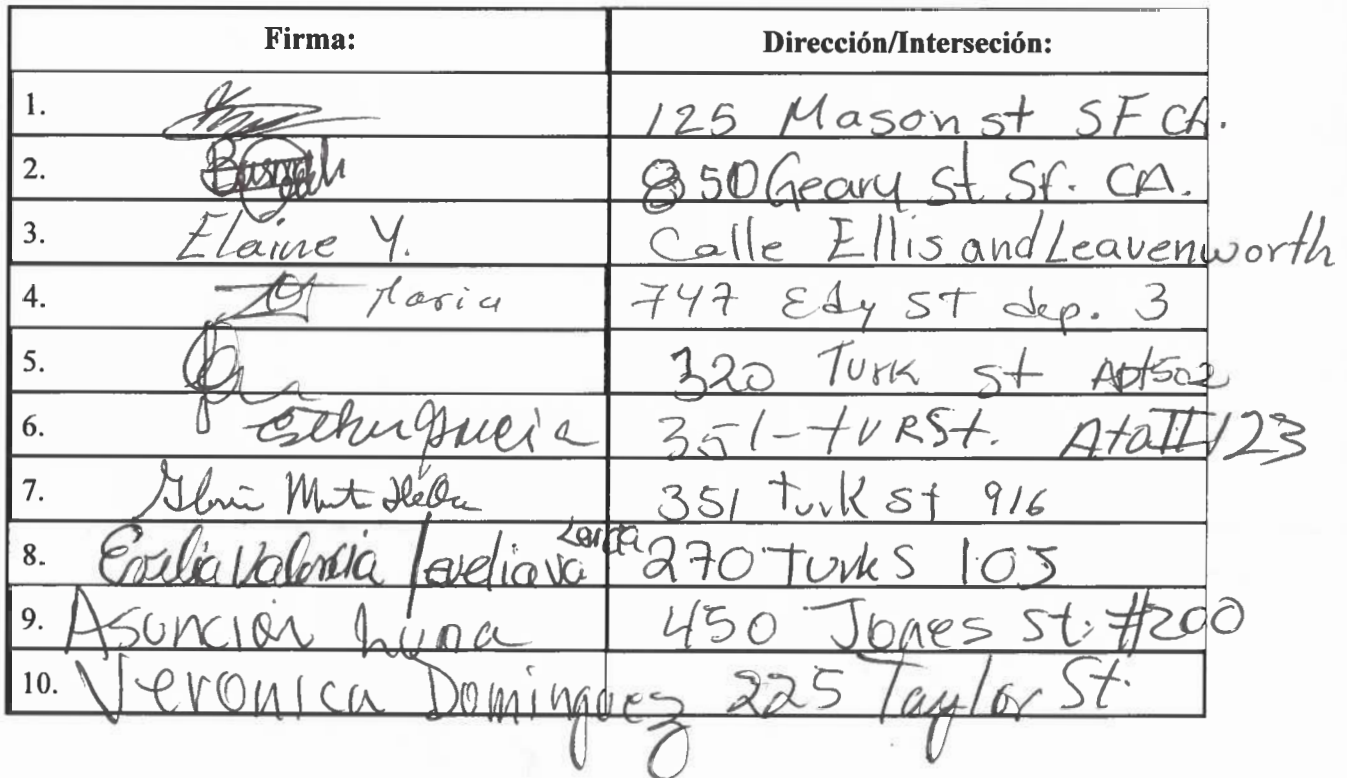 Firma: Dirección/Interseción:
1. 125 Mason st SF CA.
2. 850 Geary St. Sf. CA.
3. Elaine Y. Calle Ellis and Leavenworth
4. Maria 747 Edy ST dep. 3
5. 320 Turk st Apt 502
6. Esther 351-turSt.
7. 351 turk st 916
8. Valencia 270 Turk S 105
9. Asuncion Luna 450 Jones st. #200
10. Veronica Dominguez 225 Taylor St.